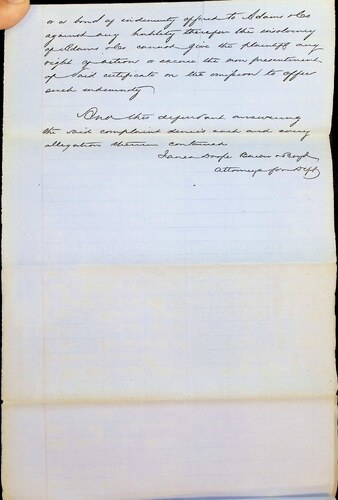 or a bond of indemnity offered to Adams & Co
against any liability therefor the insolvency
of Adams & Co cannot give the plaintiff any
right of action or excuse the non presentment
of said certificate or the omission to offer
such indemnity
And this defendant answering
the said complaint denies each and every
allegation therein contained
Janes Doyle Barber & Boyd
Attorneys for Deft